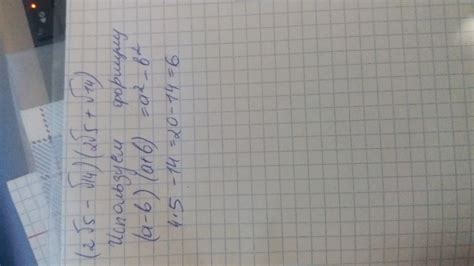 (2√5 - √14)(2√5 + √14)
Используем формулу
(a-b)(a+b) = a² - b²
4·5 - 14 = 20 - 14 = 6